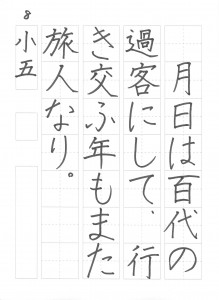 8
月日は百代の
過客にして、行
き交ふ年もまた
旅人なり。
小五